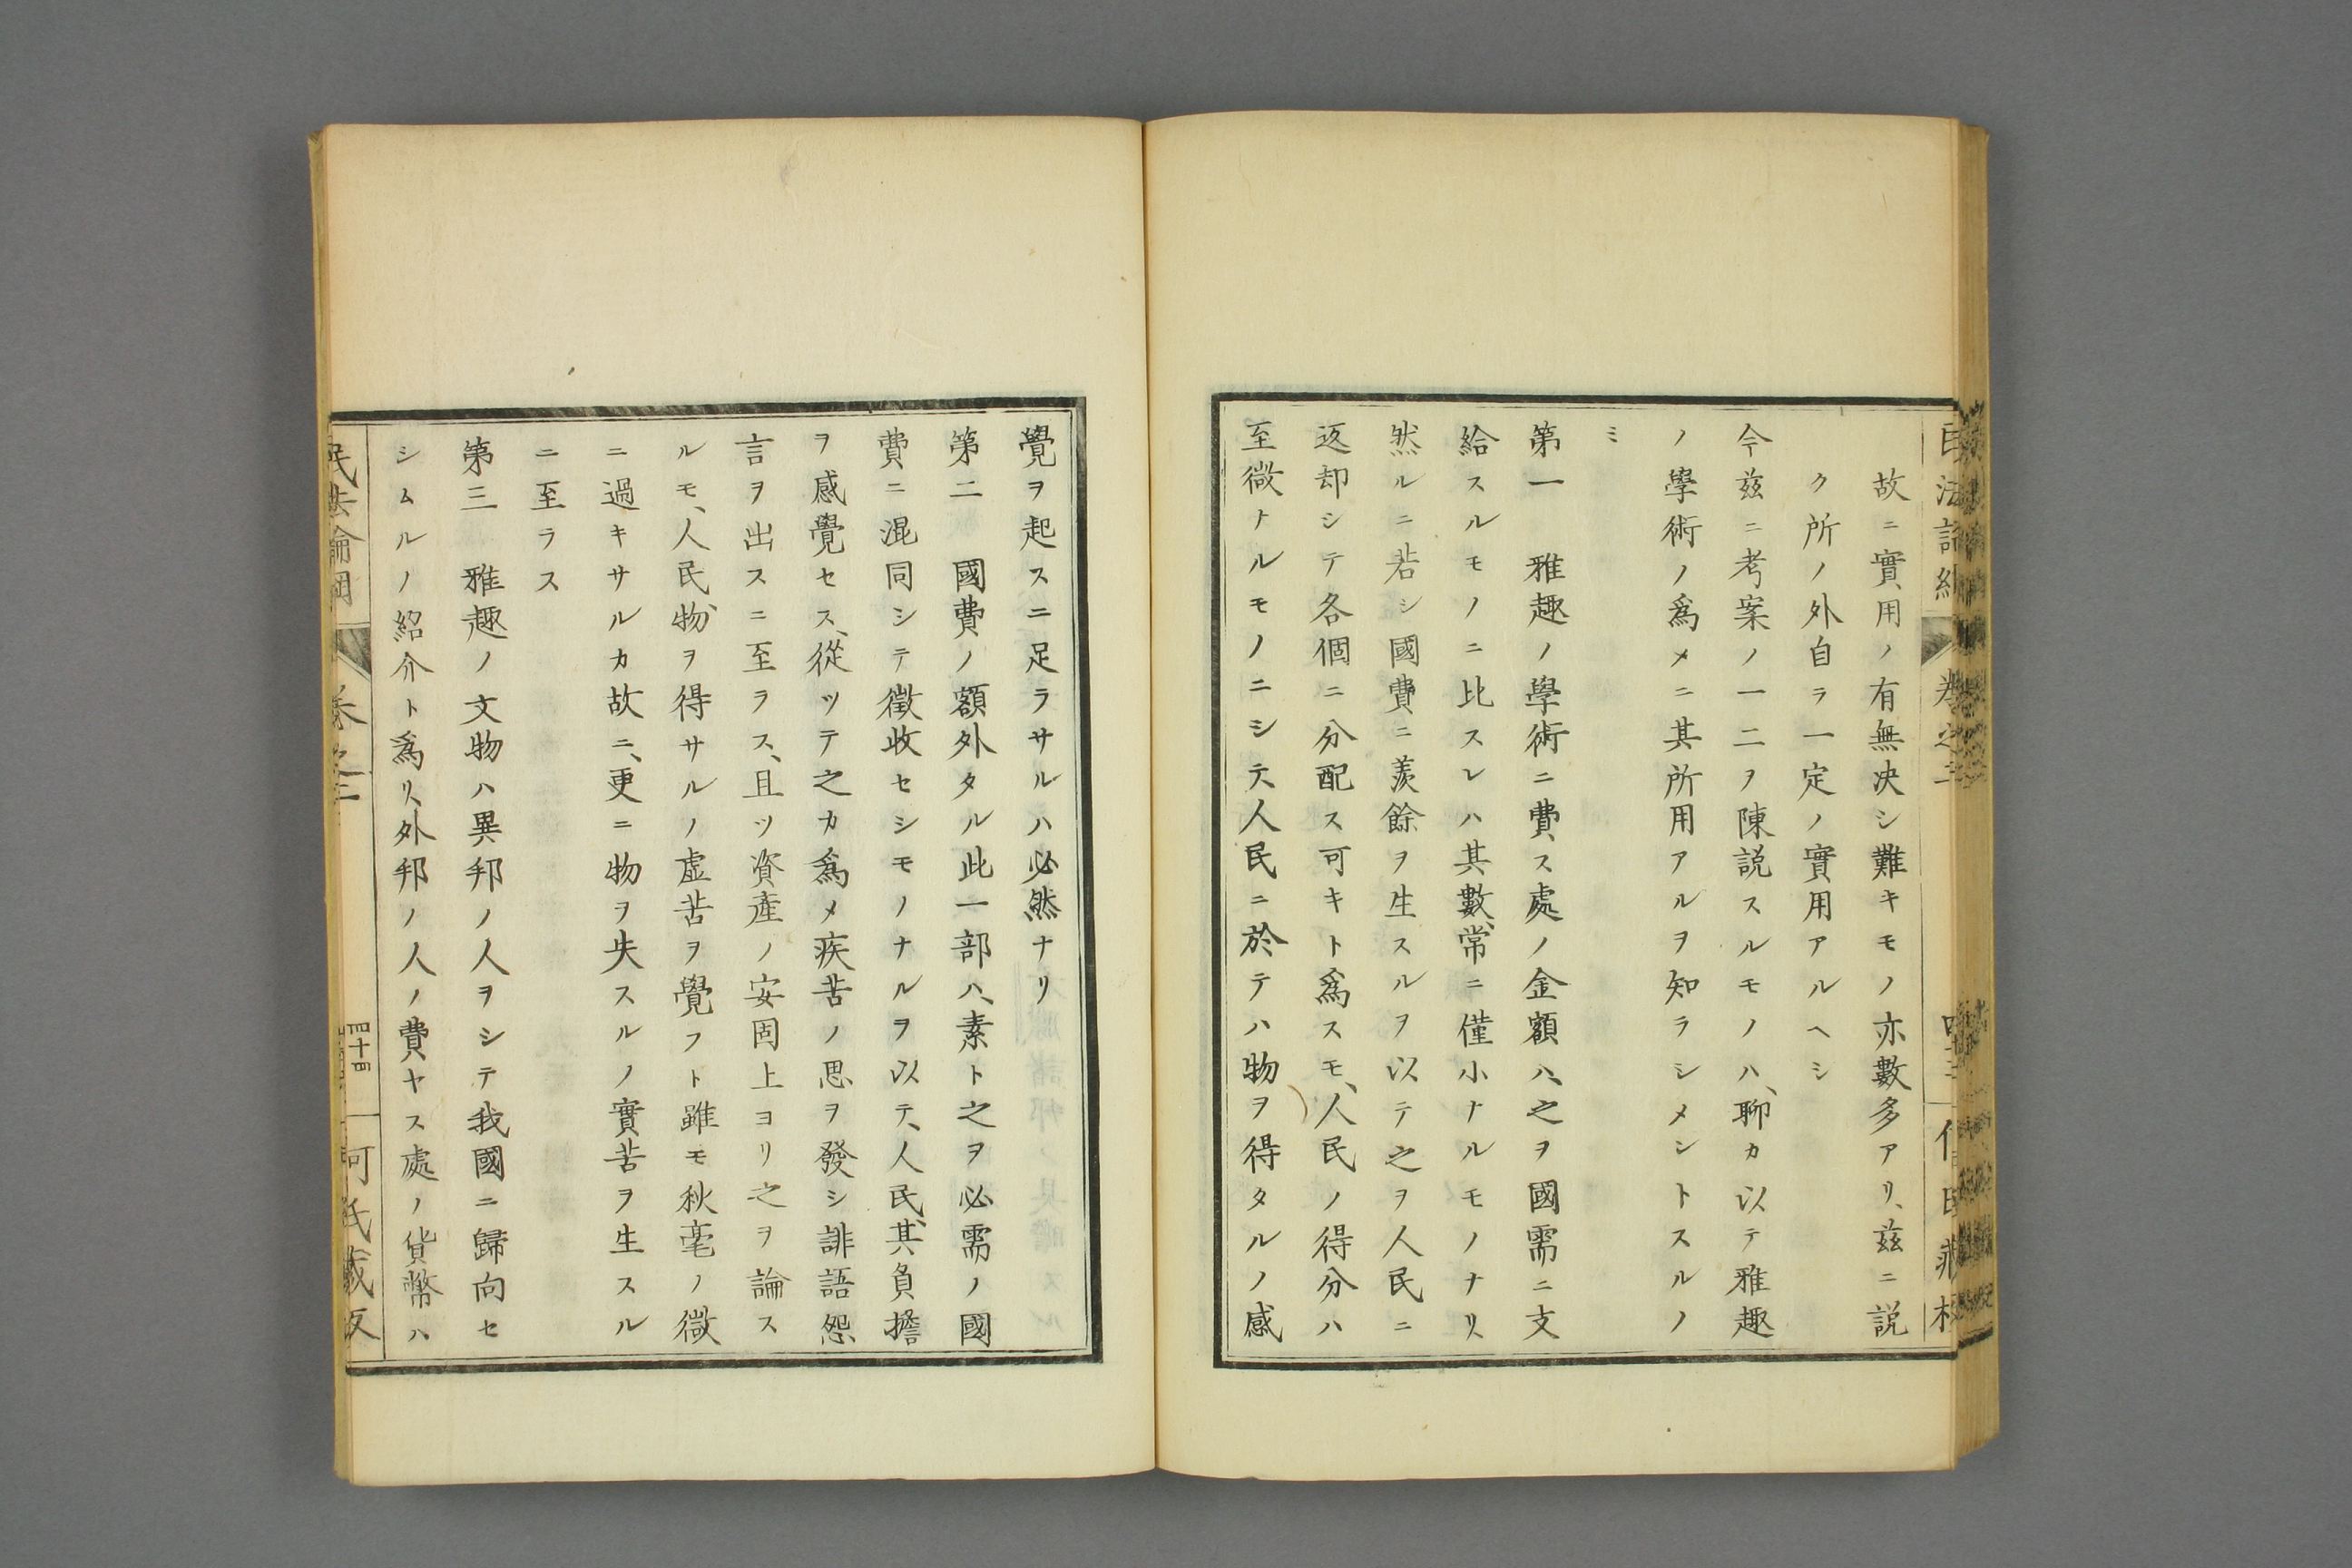 故ニ實用ノ有無决シ難キモノ亦數多アリ、茲ニ説
ク所ノ外自ラ一定ノ實用アルヘシ
今茲ニ考案ノ一二ヲ陳説スルモノハ、聊カ以テ雅趣
ノ學術ノ爲メニ其所用アルヲ知ラシメントスルノ
ミ
第一　雅趣ノ學術ニ費ス處ノ金額ハ、之ヲ國需ニ支
給スルモノニ比スレハ其數、常ニ僅小ナルモノナリ、
然ルニ若シ國費ニ羨餘ヲ生スルヲ以テ之ヲ人民ニ
返却シテ各個ニ分配ス可キト爲スモ、人民ノ得分ハ
至微ナルモノニシテ、人民ニ於テハ物ヲ得タルノ感
覺ヲ起スニ足ラサルハ必然ナリ
第二　國費ノ額外タル此一部ハ、素ト之ヲ必需ノ國
費ニ混同シテ徵收セシモノナルヲ以テ、人民、其負擔
ヲ感覺セス、從ツテ之カ爲メ疾苦ノ思ヲ發シ誹語怨
言ヲ出スニ至ラス、且ツ資産ノ安固上ヨリ之ヲ論ス
ルモ、人民、物ヲ得サルノ虚苦ヲ覺フト雖モ秋毫ノ微
ニ過キサルカ故ニ、更ニ物ヲ失スルノ實苦ヲ生スル
ニ至ラス
第三　雅趣ノ文物ハ異邦ノ人ヲシテ我國ニ歸向セ
シムルノ紹介ト爲リ、外邦ノ人ノ費ヤス處ノ貨幣ハ
民法論綱　卷之三　四十四　何氏藏板